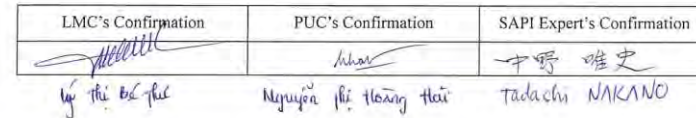 LMC's Confirmation PUC's Confirmation SAPI Expert's Confirmation
中野 唯史
Thị Bé Nguyễn Phi Hoàng Hải Tadachi NAKANO